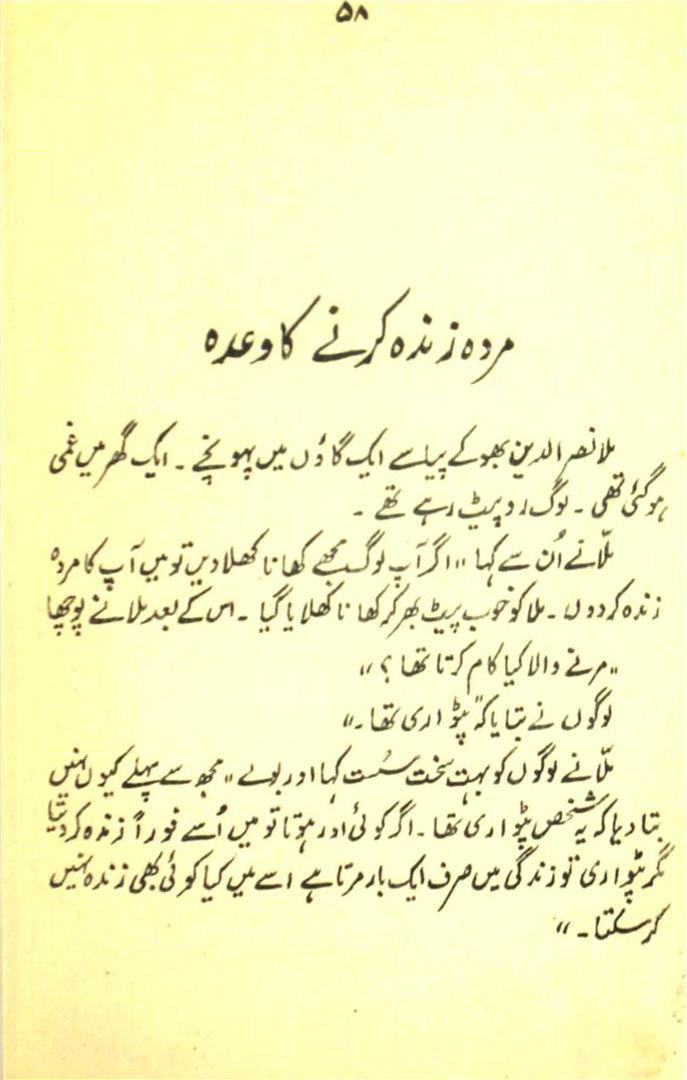 ۵۸
مردہ زندہ کرنے کا وعدہ
ملا نصر الدین بھوکے پیاسے ایک گاؤں میں پہونچے ۔ ایک گھر میں غمی
ہو گئی تھی ۔ لوگ رو پیٹ رہے تھے ۔
ملّا نے اُن سے کہا "اگر آپ لوگ مجھے کھانا کھلا دیں تو میں آپ کا مردہ
زندہ کر دوں ۔ ملا کو خوب پیٹ بھر کر کھانا کھلایا گیا ۔ اس کے بعد ملا نے پوچھا
"مرنے والا کیا کام کرتا تھا ؟"
لوگوں نے بتایا کہ "پٹواری تھا ۔"
ملّا نے لوگوں کو بہت سخت سُست کہا اور بولے "مجھ سے پہلے کیوں نہیں
بتا دیا کہ یہ شخص پٹواری تھا ۔ اگر کوئی اور ہوتا تو میں اُسے فوراً زندہ کر دیتا
مگر پٹواری تو زندگی میں صرف ایک بار مرتا ہے اسے میں کیا کوئی بھی زندہ نہیں
کر سکتا ۔"